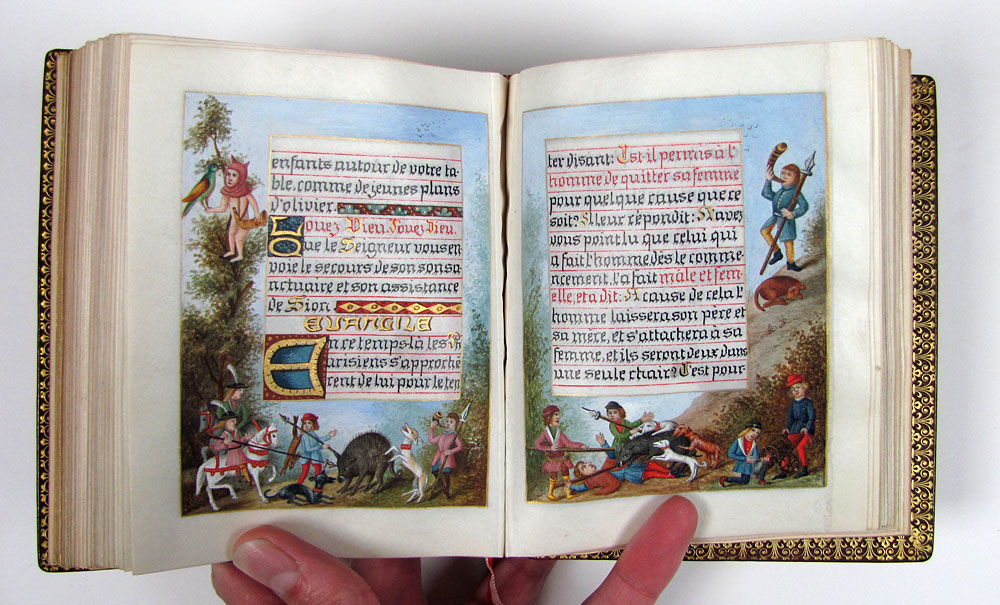 enfants autour de votre ta
ble, comme de jeunes plans
d'olivier.
Louez Dieu. Louez Dieu.
Que le Seigneur vous en
voie le secours de son son sa
nctuaire et son assistance
de Sion.
EVANGILE
En ce temps là les Ph
arisiens s'approchè
rent de lui pour le ten
ter disant: Est-il permis à l'
homme de quitter sa femme
pour quelque cause que ce
soit? Il leur répondit: N'avez
vous point lu que celui qui
a fait l'homme, dès le comme-
ncement, l'a fait mâle et fem-
elle, et a dit: A cause de cela l'
homme laissera son père et
sa mère, et s'attachera à sa
femme, et ils seront deux dans
une seule chair? C'est pour-